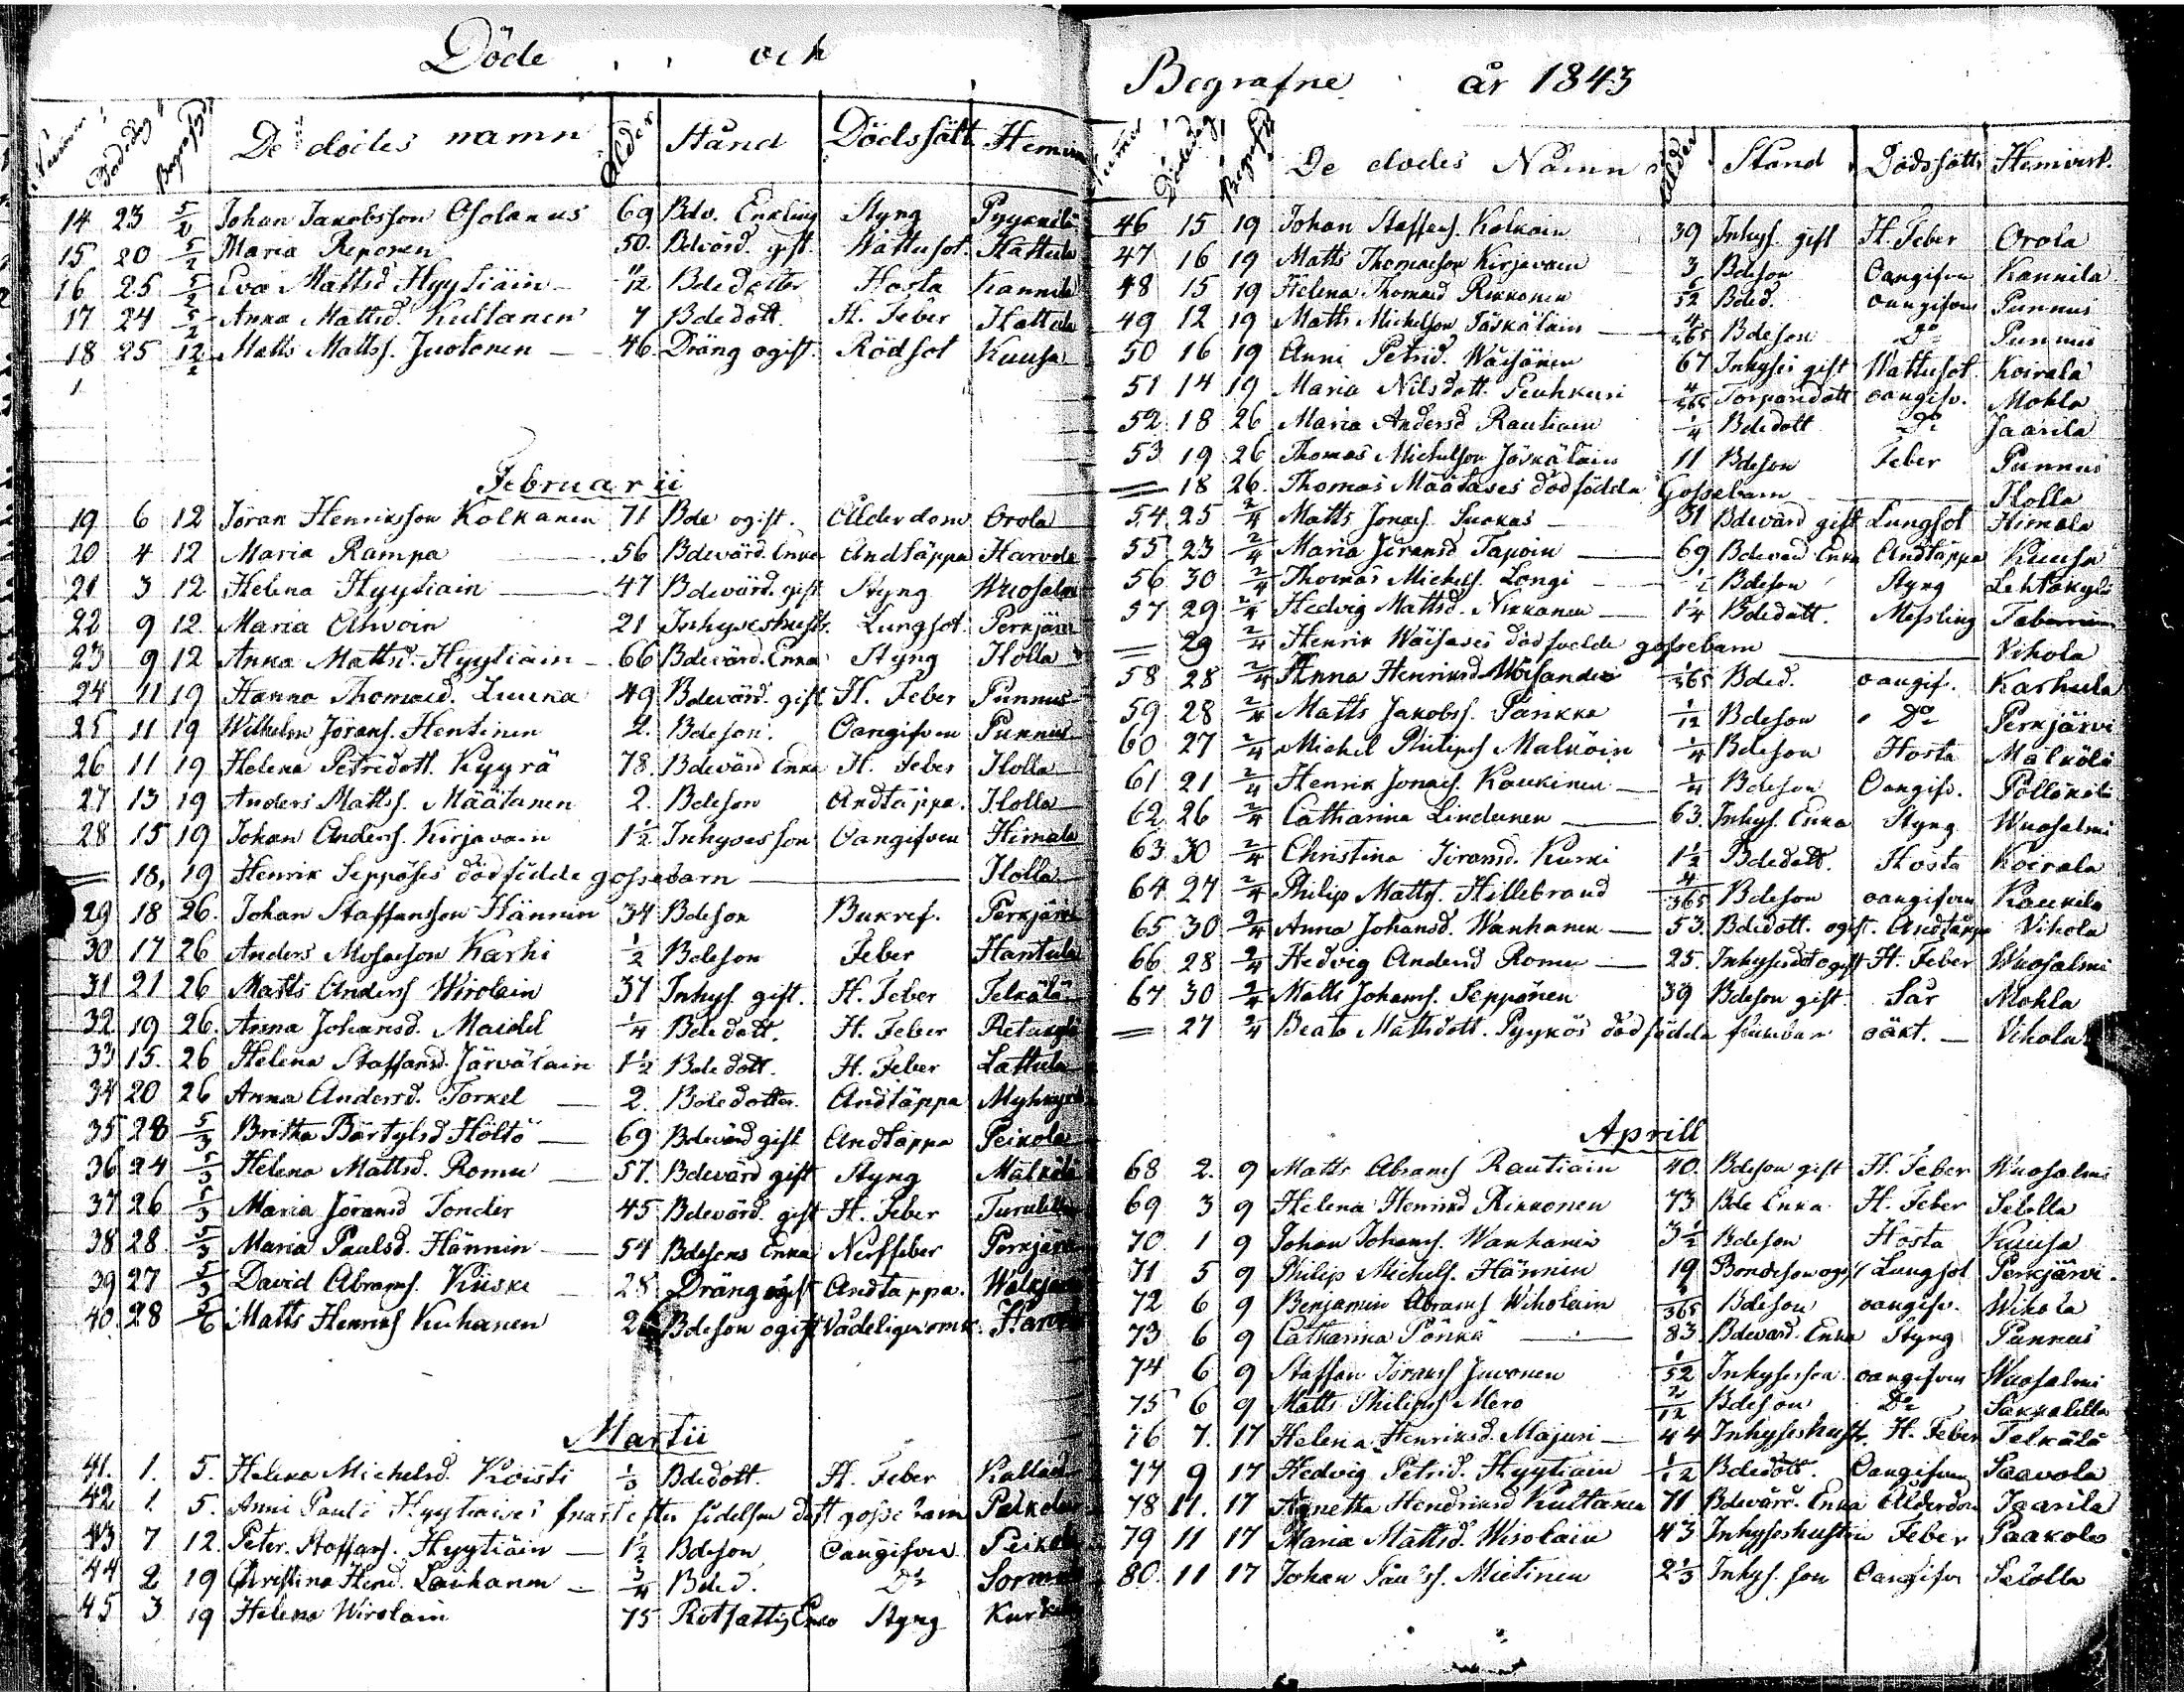 Döde och
Numm Dödsdag Begrafd De dödes namn Ålder Stånd Dödssätt Hemvist
14 23 5/2 Johan Jakobsson Osolanus 69 Bdv. Enkling Styng
15 20 5/2 Maria Reponen 50. Bdvärd. gift Wattusot. Hattula
16 25 5/2 Eva Mattsd Hyytiäin 11/12 Bdedotter Hosta Kannila
17 24 5/2 Anna Mattsd. Kultanen 7 Bdedott. H. Feber Hattula
18 25 12/2 Matts Mattss. Juotonen 46. Dräng ogift. Rödsot Kuusa
Februarii
19 6 12 Jöran Henriksson Kolkanen 71 Bde ogift. Ålderdom Orola
20 4 12 Maria Rampa 56 Bdevärd. Enka Andtäppa Harvola
21 3 12 Helena Hyytiäin 47 Bdevärd. gift Styng Wuosalmi
22 9 12. Maria Ahvoin 21 Inhyseshustr. Lungsot. Perkjärvi
23 9 12 Anna Mattsd. Hyytiäin 66 Bdevärd. Enka Styng Ilolla
24 11 19 Hanna Thomasd. Luuka 49 Bdevärd. gift H. Feber Punnus
25 11 19 Wilhelm Jörans. Hentinen 2. Bdeson. Oangifven Punnus
26 11 19 Helena Petredott. Kyyrä 78. Bdevärd Enka H. Feber Ilolla
27 13 19 Anders Matts. Määtänen 2. Bdeson Andtäppa. Ilolla
28 15 19 Johan Anders. Kirjavain 1½ Inhysesson Oangifven Himala
= 18, 19 Henrik Seppöses dödfödde gossebarn Ilolla
29 18 26. Johan Staffansson Hännin 34 Bdeson Bukref. Perkjärvi
30 17 26 Anders Mosesson Karhi ½ Bdeson Feber Hantula
31 21 26 Matts Anders Wirolain 37 Inhys. gift. H. Feber Telkälä
32 19 26. Anna Johansd. Maidel ¼ Bdedott. H. Feber
33 15. 26 Helena Staffansd. Järväläin 1½ Bdedott. H. Feber Lattula
34 20 26 Anna Andersd. Torkel 2. Bdedotter. Andtäppa
35 28 5/3 Britha Bärtylsd Höltö 69 Bdevärd gift Andtäppa Peikola
36 24 5/3 Helena Mattsd. Romu 57. Bdevärd gift Styng Mälkölä
37 26 5/3 Maria Jöransd Tonder 45 Bdevärd. gift H. Feber
38 28 5/3 Maria Paulsd. Hännin 54 Bdesens Enka Nerffeber Perkjärvi
39 27 5/3 David Abrams. Kiiski 28 Dräng ogift Andtäppa. Walkjärvi
40. 28 5/6 Matts Henriks Kuhanen 26 Bdeson ogift Vådeligen omk.
Martii
41. 1. 5. Helena Michelsd. Koisti 1/3 Bdedott. H. Feber
42 1 5. Anni Pauli Hyytiäises snart efter födelsen dött gossebarn Peikola
43 7 12. Peter. Staffans. Hyytiäin 1½ Bdeson Oangifven Peikola
44 2 19 Christina Hend. Laihanen ¾ Bded. Do
45 3 19 Helena Wirolain 75 Rotfattig Enka Styng
Begrafne år 1843
Numer Dödsdag Begrafd De dödes Namn Ålder Stånd Dödssätt Hemvist.
46 15 19 Johan Staffens. Kolkain 39 Inhys. gift H. Feber Orola
47 16 19 Matts Thomasson Kirjavain 3 Bdeson Oangifven Kannila
48 15 19 Helena Thomasd Rikkonen 6/52 Bded. oangifven Punnus
49 12 19 Matts Michelson Jäskäläin 4/365 Bdeson Do Punnus
50 16 19 Anni Petrid. Wäisänen 67 Inhyses gift Wattusot. Koirala
51 14 19 Maria Nilsdott. Peuhkuri 4/365 Torpardott oangifv. Mohla
52 18 26 Maria Andersd Rautiain ¼ Bdedott Do Jaarila
53 19 26 Thomas Michelson Jäskäläin 11 Bdeson Feber Punnus
= 18 26. Thomas Määtäses dödfödda Gossebarn Ilolla
54 25 2/4 Matts Jonas. Suokas 31 Bdevärd gift Lungsot Himala
55 23 2/4 Maria Jöransd Tapoin 69 Bdevärd Enka Andtäppa Kuusa
56 30 2/4 Thomas Michels. Longi ½ Bdeson Styng Lehtokylä
57 29 2/4 Hedvig Mattsd. Nikkanen 1¼ Bdedott. Messling
= 29 2/4 Henrik Wäisäses dödfödde gossebarn Vihola
58 28 2/4 Anna Henriksd 1/365 Bded. oangif. Karhula
59 28 2/4 Matts Jakobss. Pankka 1/12 Bdeson Do Perkjärvi
60 27 2/4 Michel Philips Malköin ¼ Bdeson Hosta Mälkölä
61 21 2/4 Henrik Jonas. Kaukinen ¼ Bdeson Oangifv. Pöllökälä
62 26 2/4 Catharina Lindunen 63. Inhys. Enka Styng Wuosalmi
63 30 2/4 Christina Jöransd. Kurki 1½ Bdedott. Hosta Koirala
64 27 2/4 Philip Matts. Hillebrand 4/365 Bdeson oangifven Kaukila
65 30 2/4 Anna Johansd. Wanhanen 53. Bdedott. ogift. Andtäppa Vihola
66 28 2/4 Hedvig Andersd Romu 25. Inhysesdot ogift H. Feber Wuosalmi
67 30 2/4 Matts Johans. Seppänen 39 Bdeson gift Sår Mohla
= 27 2/4 Beata Mattsdott. Pyykös dödfödda oäkt. Vihola
Aprill
68 2. 9 Matts Abrams Rautiain 40. Bdeson gift H. Feber Wuosalmi
69 3 9 Helena Henriksd Rikkonen 73 Bde Enka. H. Feber Sälolla
70. 1 9 Johan Johans. Wanhanen 3½ Bdeson Hosta Kuusa
71 5 9 Philip Michels. Hännin 19 Bondeson ogift Lungsot Perkjärvi.
72 6 9 Benjamin Abrams Wiholain /365 Bdeson oangifv. Wihola
73 6 9 Catharina Pönkä 83 Bdevärd. Enka Styng Punnus
74 6 9 Staffan Jörans Juvonen 1/52 Inhysesson oangifven Wuosalmi
75 6 9 Matts Philips Mero 2/12 Bdeson Do Sakkalilla
76 7. 17 Helena Henriksd. Majuri 44 Inhyseshustr. H. Feber Telkälä
77 9 17 Hedvig Petrid. Hyytiäin 1/12 Bdedott. Oangifven Saavola
78 11. 17 Agnetha Hendriksd Kultanen 71 Bdevärd. Enka Ålderdom Jaarila
79 11 17 Maria Mattsd. Wirolain 43 Inhyseshustru Feber Paakola
80. 11 17 Johan Pauls. Mietinen 2⅓ Inhys. son Oangifven Sälolla